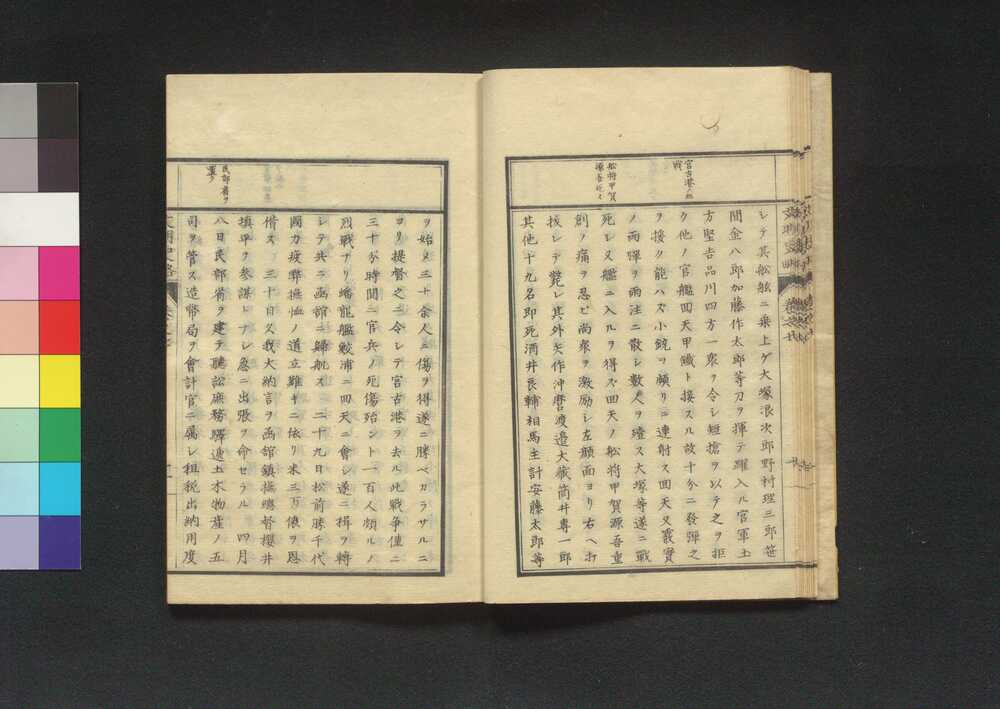 宮古港ノ海
戦
船将甲賀
源吾死ス
シテ其船舷ニ乗上ゲ大塚浪次郎野村理三郎笹
間金八郎加藤作太郎等刀ヲ揮テ躍入ル官軍土
方堅吉品川四方一衆ヲ令シ短槍ヲ以テ之ヲ拒
ク他ノ官艦回天甲鐵ト接スル故十分ニ發弾之
ヲ接ク能ハス小銃ヲ頻リニ連射ス回天又霰實
ノ両弾ヲ雨注ニ散シ數人ヲ殪ス大塚等遂ニ戰
死シ又艦ニ入ルヲ得ス回天ノ船将甲賀源吾重
創ノ痛ヲ忍ビ尚衆ヲ激励シ左顔面ヨリ右ヘ打
抜レテ斃レ其外矢作沖麿渡邉大蔵筒井専一郎
其他十九名即死酒井良輔相馬主計安藤太郎等
民部省ヲ
置ク
ヲ始メ三十余人ニ傷ヲ得遂ニ勝ベカラサルニ
ヨリ提督之ニ令シテ宮古港ヲ去ル此戦争僅ニ
三十分時間ニ官兵ノ死傷殆ント一百人頗ルノ
烈戦ナリ蟠龍艦鮫浦ニ回天ニ會シ遂ニ楫ヲ轉
シテ共ニ函館ニ歸航ス 二十九日松前勝千代
國力疲弊撫恤ノ道立難キニ依リ米三万俵ヲ恩
借ス 三十日又我大納言ヲ函館鎮撫總督櫻井
填平ヲ参謀トナシ急ニ出張ヲ命セラル 四月
八日民部省ヲ建テ聽訟庶務驛逓土木物産ノ五
司ヲ管ス造幣局ヲ會計官ニ属シ租税出納用度